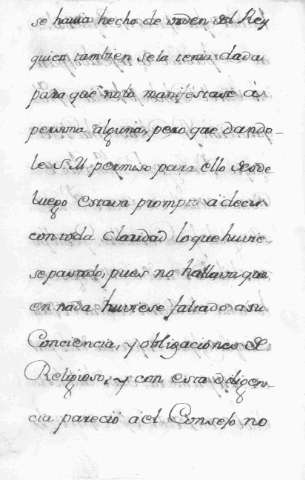 se havia hecho de orden del Rey
quien tambien se la tenia dada
para que no lo manifestase a
persona alguna, pero que dando-
le S.M. permiso para ello desde
luego estava prompto a decir
con toda claridad lo que huvie-
se pasado, pues no hallava que
en nada huviese faltado a su
Conciencia, y obligaciones de
Religioso, y con esta diligen-
cia pareció a el Consejo no